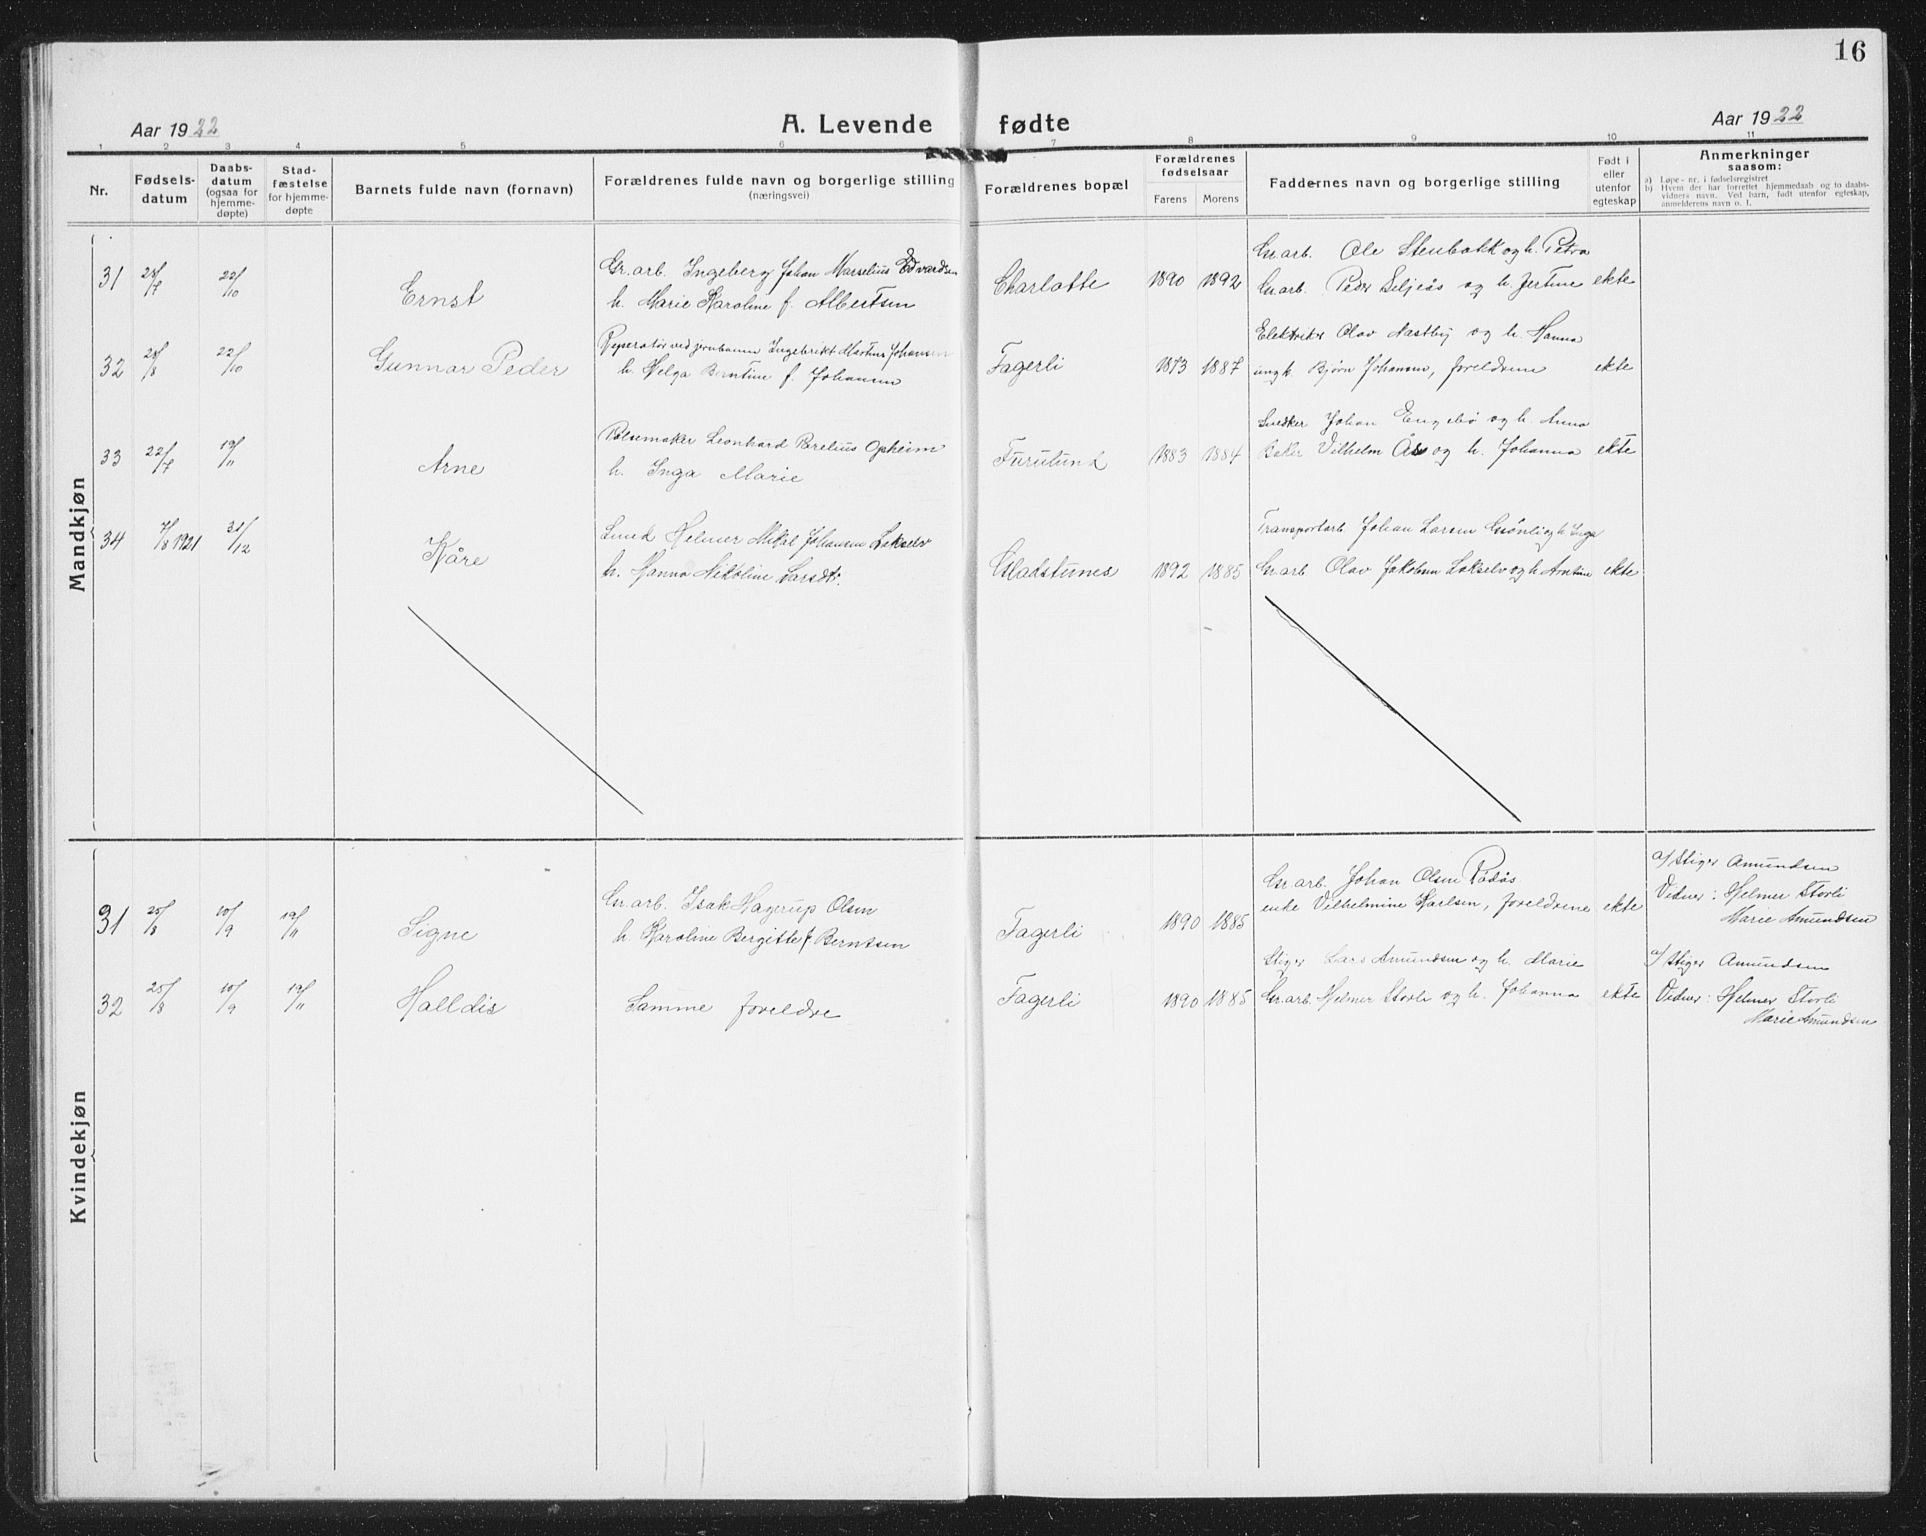 16
Aar 1922
A. Levende fødte
Aar 1922
1 2 3 4 5 6 7 8 9 10 11
Nr.
Fødsels-
datum
Daabs-
datum
(ogsaa for
hjemme-
døpte)
Stad-
fæstelse
for hjemme-
døpte
Barnets fulde navn (fornavn)
Forældrenes fulde navn og borgerlige stilling
(næringsvei)
Forældrenes bopæl
Forældrenes
fødselsaar
Farens Morens
Faddernes navn og borgerlige stilling
Født i
eller
utenfor
egteskap
Anmerkninger
saasom:
a) Løpe-nr. i fødselsregistret
b) Hvem der har forrettet hjemmedaab og to daabs-
vidners navn. Ved barn, født utenfor egteskap,
anmelderens navn o. l.
Mandkjøn
31 28/7 22/10
Ernst
Gr. arb. Ingeberg Johan Marselius Edvardsen
h. Marie Karoline f. Albertsen
Charlotte 1890 1892
Gr. arb. Ole Stenbakk og h. Petra
Gr. arb. Peder og h. Jertine ekte
32 28/8 22/10
Gunnar Peder
Reperatør ved jernbanen Ingebrikt Martin Johansen
h. Helga Berntine f. Johansen
Fagerli 1873 1887
Elektriker Olav Nastby og h. Hanna
ungk. Bjørn Johansen, foreldrene ekte
33 22/7 19/11
Arne
Pølsemaker Leonhard Parelius Opheim
h. Inga Marie
Furulund 1883 1884
Snedker Johan Engebø og h. Anna
Baker Vilhelm Ås og h. Johanna ekte
34 7/8 1921 31/12
Kåre
Smed Helmer Mikal Johansen Lakselv
h. Hanna Nikoline Larsdt:
Gladstunes 1892 1885
Transportarb Johan Larsen Grønli og h Inga
Gr. arb Olav Jakobsen Lakselv og h Arntine ekte
Kvindekjøn
31 25/8 10/9 19/11
Signe
Gr. arb. Isak Hagerup Olsen
h. Karoline Bergitte f Berntsen
Fagerli 1890 1885
Gr. arb. Johan Olsen Rødås
enke Vilhelmine Karlsen, foreldrene ekte
af Stiger Amundsen
Vidner: Helmer Storli
Marie Amundsen
32 25/8 10/9 19/11
Halldis
Samme foreldre
Fagerli 1890 1885
Stiger Lars Amundsen og h. Marie
Gr. arb. Helmer Storli og h. Johanna ekte
af Stiger Amundsen
Vidner: Helmer Storli
Marie Amundsen